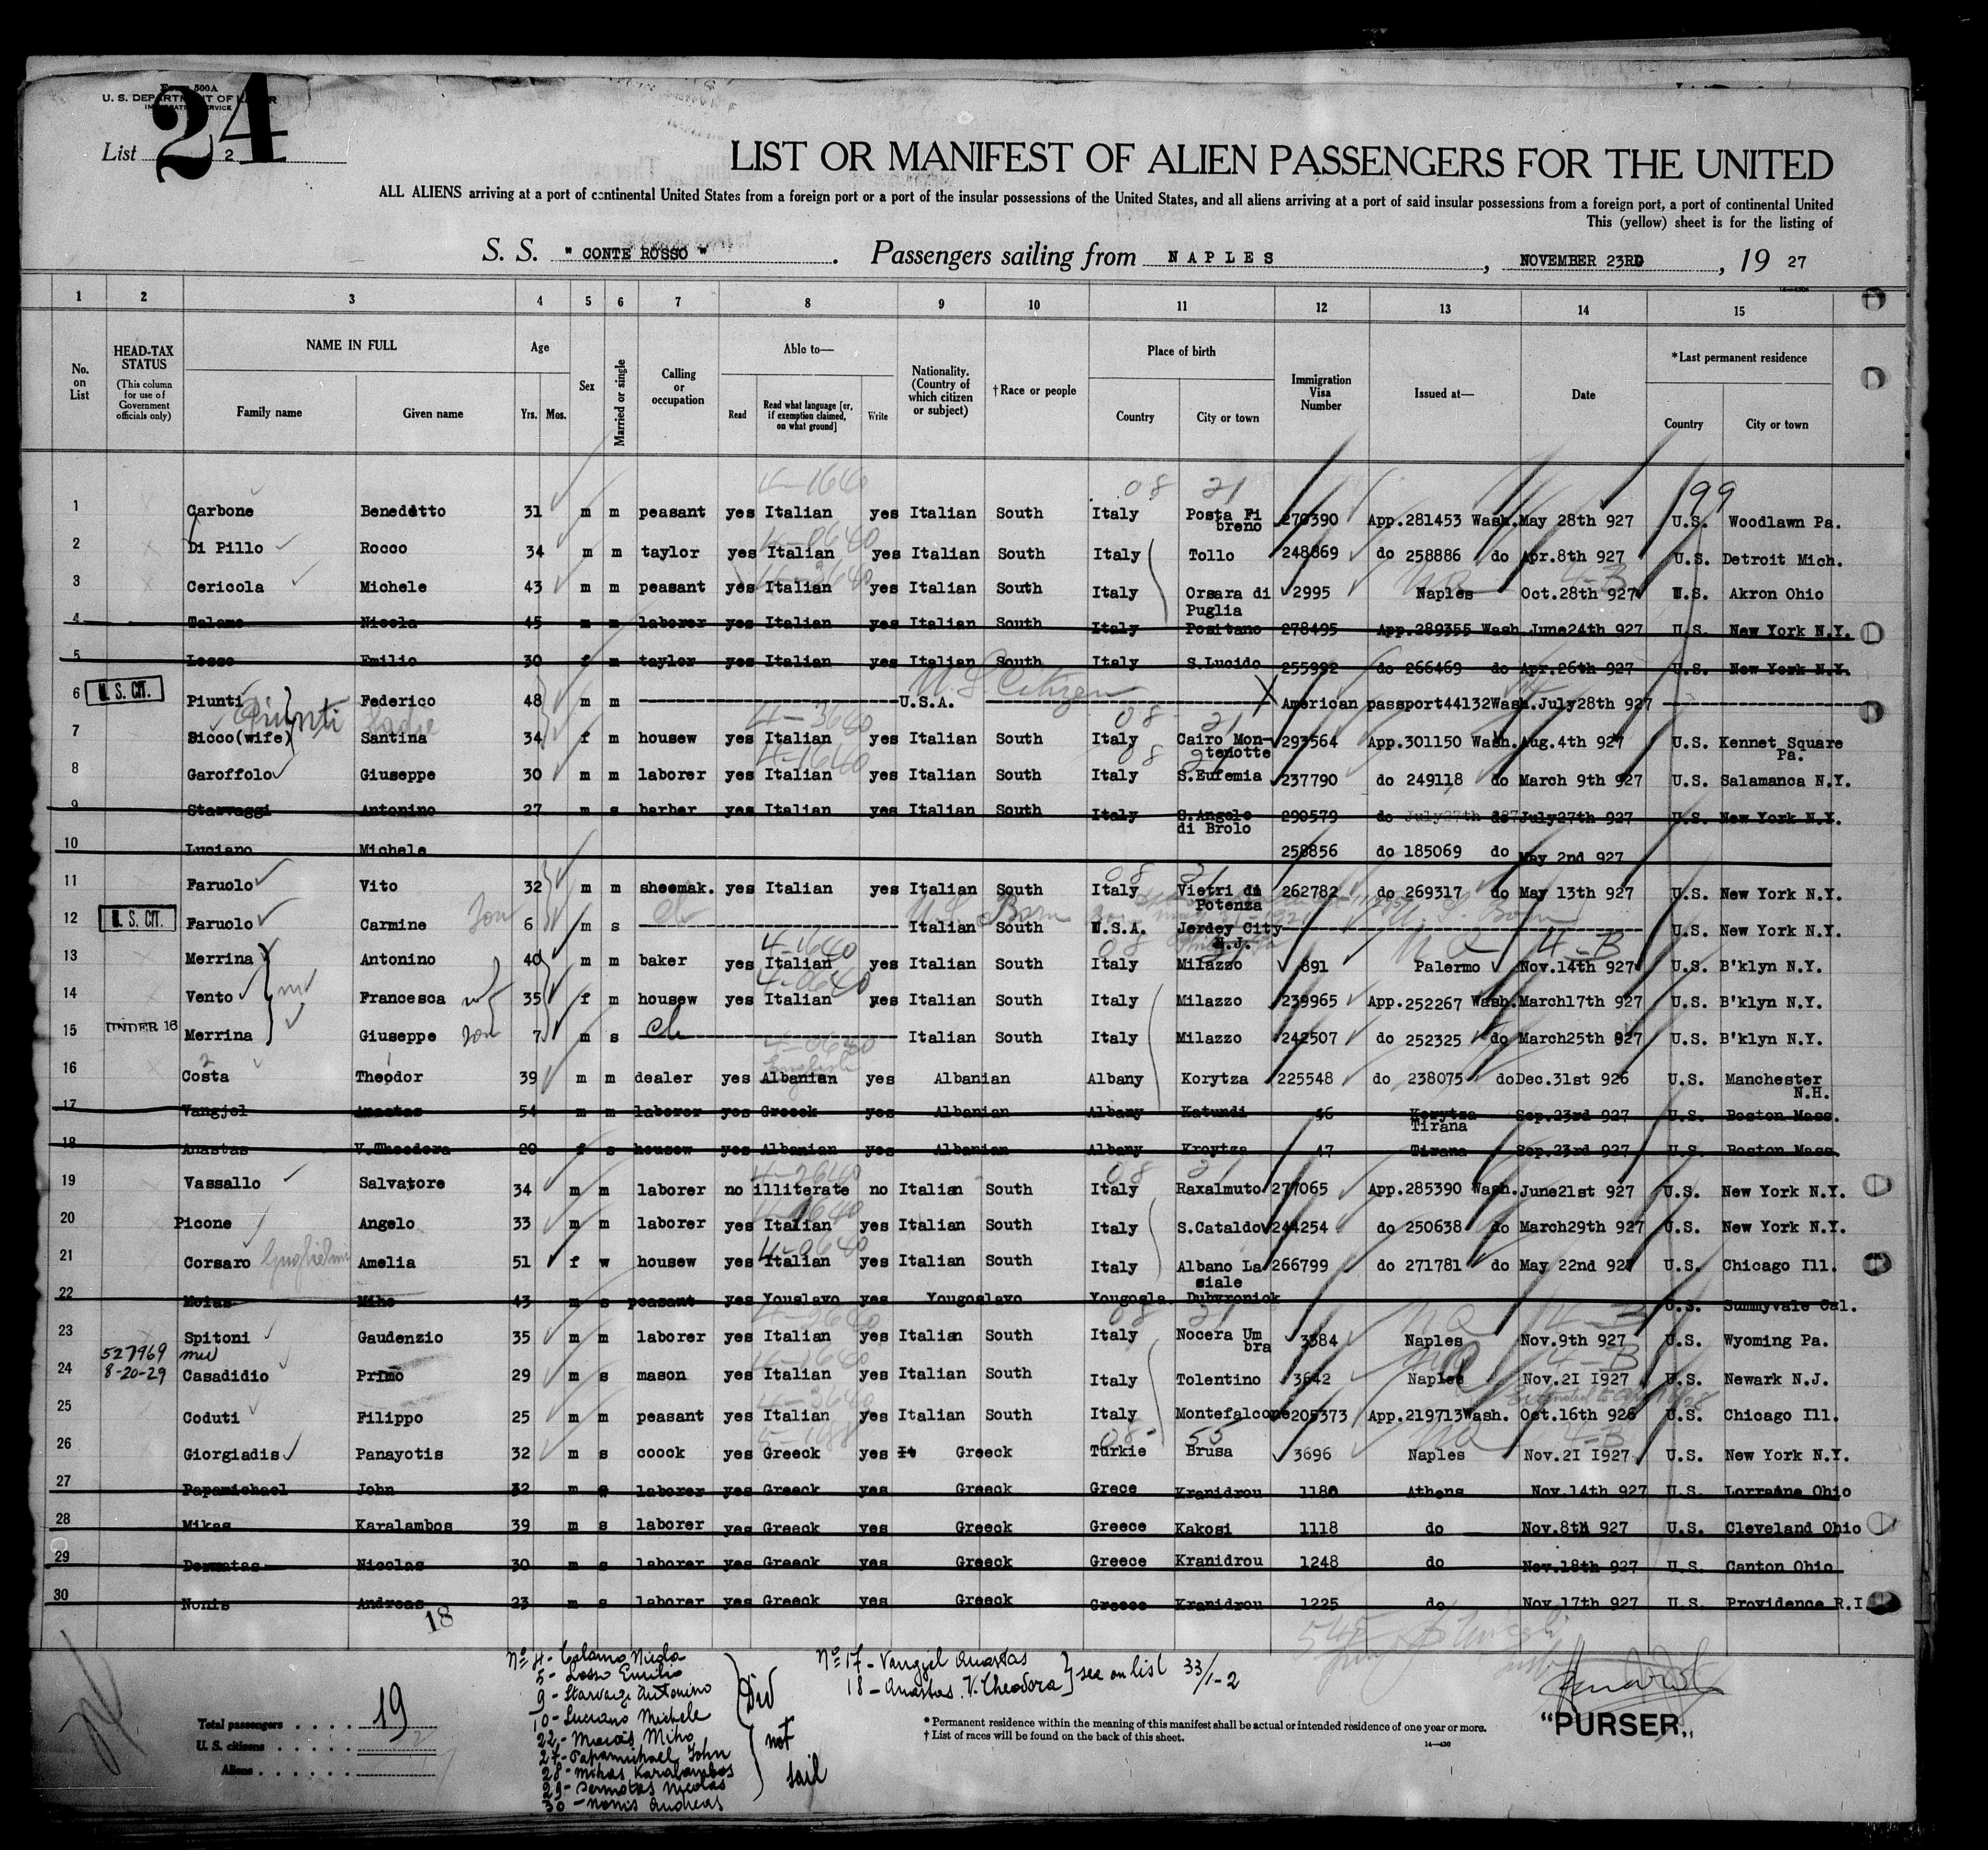 Form 500A
U. S. DEPARTMENT OF LABOR
IMMIGRATION SERVICE
24
List 2
LIST OR MANIFEST OF ALIEN PASSENGERS FOR THE UNITED
ALL ALIENS arriving at a port of continental United States from a foreign port or a port of the insular possessions of the United States, and all aliens arriving at a port of said insular possessions from a foreign port, a port of continental United
This (yellow) sheet is for the listing of
S. S. " CONTE ROSSO " . Passengers sailing from NAPLES , NOVEMBER 23RD , 19 27
1 2 3 4 5 6 7 8 9 10 11 12 13 14 15
No. on List
HEAD-TAX STATUS (This column for use of Government officials only)
NAME IN FULL
Family name Given name
Age
Yrs. Mos.
Sex
Married or single
Calling or occupation
Able to—
Read Read what language [or, if exemption claimed, on what ground] Write
Nationality. (Country of which citizen or subject)
†Race or people
Place of birth
Country City or town
Immigration Visa Number
Issued at—
Date
*Last permanent residence
Country City or town
4-1640 08 21 199
1 Carbone Benedetto 31 m m peasant yes Italian yes Italian South Italy Posta Fi breno 270390 App.281453 Wash. May 28th 927 U.S. Woodlawn Pa.
4-0640
2 Di Pillo Rocco 34 m m taylor yes Italian yes Italian South Italy Tollo 248869 do 258886 do Apr.8th 927 U.S. Detroit Mich.
4-3640 4-B
3 Cericola Michele 43 m m peasant yes Italian yes Italian South Italy Orsara di Puglia 2995 Naples Oct.28th 927 U.S. Akron Ohio
4 Talamo Nicola 45 m m laborer yes Italian yes Italian South Italy Positano 278495 App.289355 Wash. June24th 927 U.S. New York N.Y.
5 Losso Emilio 30 f m taylor yes Italian yes Italian South Italy S.Lucido 255992 do 266469 do Apr.26th 927 U.S. New York N.Y.
U.S. Citizen
6 U.S. CIT. Piunti Federico 48 m m U.S.A. American passport44132Wash.July28th 927
Piunti 4-3640 08 21
7 Sicco(wife) Santina 34 f m housew yes Italian yes Italian South Italy Cairo Mon-tenotte 293564 App.301150 Wash. Aug.4th 927 U.S. Kennet Square Pa.
4-1640 08 21
8 Garoffolo Giuseppe 30 m m laborer yes Italian yes Italian South Italy S.Eufemia 237790 do 249118 do March 9th 927 U.S. Salamanca N.Y.
9 Starvaggi Antonino 27 m s barber yes Italian yes Italian South Italy S.Angelo di Brolo 290579 do July27th do July27th 927 U.S. New York N.Y.
10 Luciano Michele 258856 do 185069 do May 2nd 927
08 21
11 Faruolo Vito 32 m m shoemak. yes Italian yes Italian South Italy Vietri di Potenza 262782 do 269317 do May 13th 927 U.S. New York N.Y.
12 U.S. CIT. Faruolo Carmine Son 6 m s ch Italian South U.S. Born U.S.A. Jerdey City N.J. U.S. Born U.S. New York N.Y.
4-1640 08 4-B
13 Merrina Antonino 40 m m baker yes Italian yes Italian South Italy Milazzo 891 Palermo Nov.14th 927 U.S. B'klyn N.Y.
4-0640
14 Vento Francesca wf 35 f m housew yes Italian yes Italian South Italy Milazzo 239965 App.252267 Wash. March17th 927 U.S. B'klyn N.Y.
15 UNDER 16 Merrina Giuseppe Son 7 m s ch Italian South Italy Milazzo 242507 do 252325 do March25th 927 U.S. B'klyn N.Y.
English
16 Costa Theodor 39 m m dealer yes Albanian yes Albanian Albany Korytza 225548 do 238075 do Dec.31st 926 U.S. Manchester N.H.
17 Vangjel Anastas 54 m m laborer yes Greeck yes Albanian Albany Katundi 46 Korytza Tirana Sep.23rd 927 U.S. Boston Mass.
18 Anastas V.Theodora 20 f s housew yes Albanian yes Albanian Albany Kroytza 47 Tirana Sep.23rd 927 U.S. Boston Mass.
4-2640 08 21
19 Vassallo Salvatore 34 m m laborer no illiterate no Italian South Italy Raxalmuto 277065 App.285390 Wash. June21st 927 U.S. New York N.Y.
20 Picone Angelo 33 m m laborer yes Italian yes Italian South Italy S.Cataldo 244254 do 250638 do March29th 927 U.S. New York N.Y.
4-0640
21 Corsaro Guglielmi Amelia 51 f w housew yes Italian yes Italian South Italy Albano La siale 266799 do 271781 do May 22nd 927 U.S. Chicago Ill.
22 Moias Miho 43 m s peasant yes Youslavo yes Yougoslavo Yougosla. Dubvronick U.S. Summyvale Cal.
4-3640 08 21 4-B
23 Spitoni Gaudenzio 35 m m laborer yes Italian yes Italian South Italy Nocera Um bra 3384 Naples Nov.9th 927 U.S. Wyoming Pa.
527969 4-1640 4-B
24 8-20-29 Casadidio Primo 29 m s mason yes Italian yes Italian South Italy Tolentino 3642 Naples Nov.2I I927 U.S. Newark N.J.
4-3640
25 Coduti Filippo 25 m m peasant yes Italian yes Italian South Italy Montefalcone 205373 App.219713Wash. Oct.16th 926 U.S. Chicago Ill.
08 55 4-B
26 Giorgiadis Panayotis 32 m s coock yes Greeck yes It Greeck Turkie Brusa 3696 Naples Nov.2I I927 U.S. New York N.Y.
27 Papamichael John 32 m s laborer yes Greeck yes Greeck Grece Kranidrou 1180 Athens Nov.14th 927 U.S. Lorraine Ohio
28 Mikas Karalambos 39 m s laborer yes Greeck yes Greeck Greece Kakosi 1118 do Nov.8th 927 U.S. Cleveland Ohio
29 Dermatas Nicolas 30 m s laborer yes Greeck yes Greeck Greece Kranidrou 1248 do Nov.18th 927 U.S. Canton Ohio
30 Nonis Andreas 23 m s laborer yes Greeck yes Greeck Greece Kranidrou 1225 do Nov.17th 927 U.S. Providence R.I.
18
No 4 - Talamo Nicola
5 - Losso Emilio
9 - Starvaggi Antonino
10 - Luciano Michele
22 - Moias Miho
27 - Papamichael John
28 - Mikas Karalambos
29 - Dermatas Nicolas
30 - Nonis Andreas
Did not sail
No 17 - Vangjel Anastas
18 - Anastas. V. Theodora } see on list 33/1-2
Total passengers . . . . 19
U. S. citizens . . . . .
Aliens . . . . . .
* Permanent residence within the meaning of this manifest shall be actual or intended residence of one year or more.
† List of races will be found on the back of this sheet.
14—430
"PURSER„